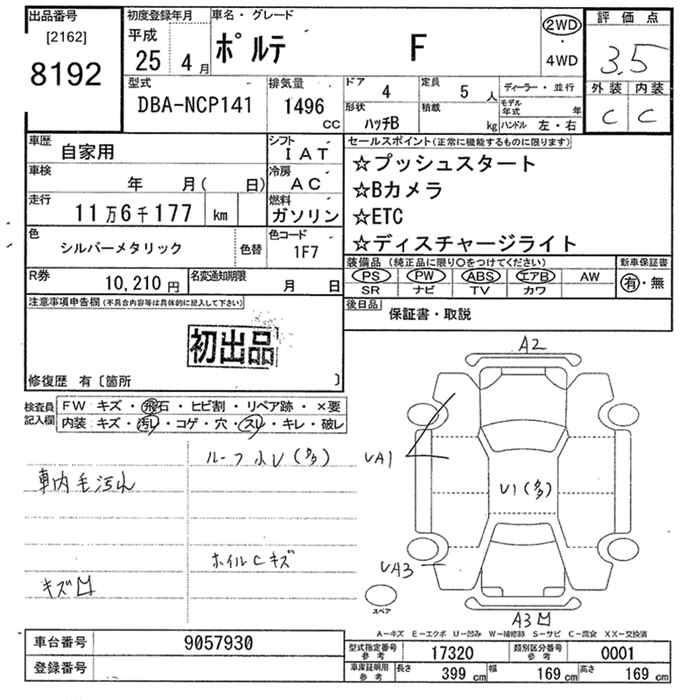 出品番号 初度登録年月 車名・グレード 評価点
[2162] 平成
8192 25年 4月 ポルテ F 2WD・4WD 3.5
型式 排気量 ドア 4 定員 5人 ディーラー・並行 外装 内装
DBA-NCP141 1496cc 形状 ハッチB 積載 kg モデル年式 年 ハンドル 左・右 C C
車歴 自家用 シフト IAT セールスポイント(正常に機能するものに限ります)
車検 年 月(日) 冷房 AC ☆プッシュスタート
走行 11万6千177 km 燃料 ガソリン ☆Bカメラ
☆ETC
色 シルバーメタリック 色替 色コード 1F7 ☆ディスチャージライト
R券 10,210円 名変通知期限 月 日 装備品(純正品に限り〇をつけてください) 新車保証書
PS PW ABS エアB AW 有・無
SR ナビ TV カワ
注意事項申告欄(不具合内容等は具体的に記入して下さい) 後日品 保証書・取説
初出品
修復歴 有〔箇所 〕
検査員記入欄 FW キズ・飛石・ヒビ割・リペア跡・×要
内装 キズ・汚レ・コゲ・穴・スレ・キレ・破レ
ルーフ (多)
車内毛汚れ
ホイルCキズ
キズ凹
A2
UA1
U1(多)
UA3
スペア
A3凹
A-キズ E-エクボ U-凹み W-補修跡 S-サビ C-腐食 XX-交換済
車台番号 9057930 型式指定番号 参考 17320 類別区分番号 参考 0001
登録番号 車庫証明用 参考 長さ 399cm 幅 169cm 高さ 169cm